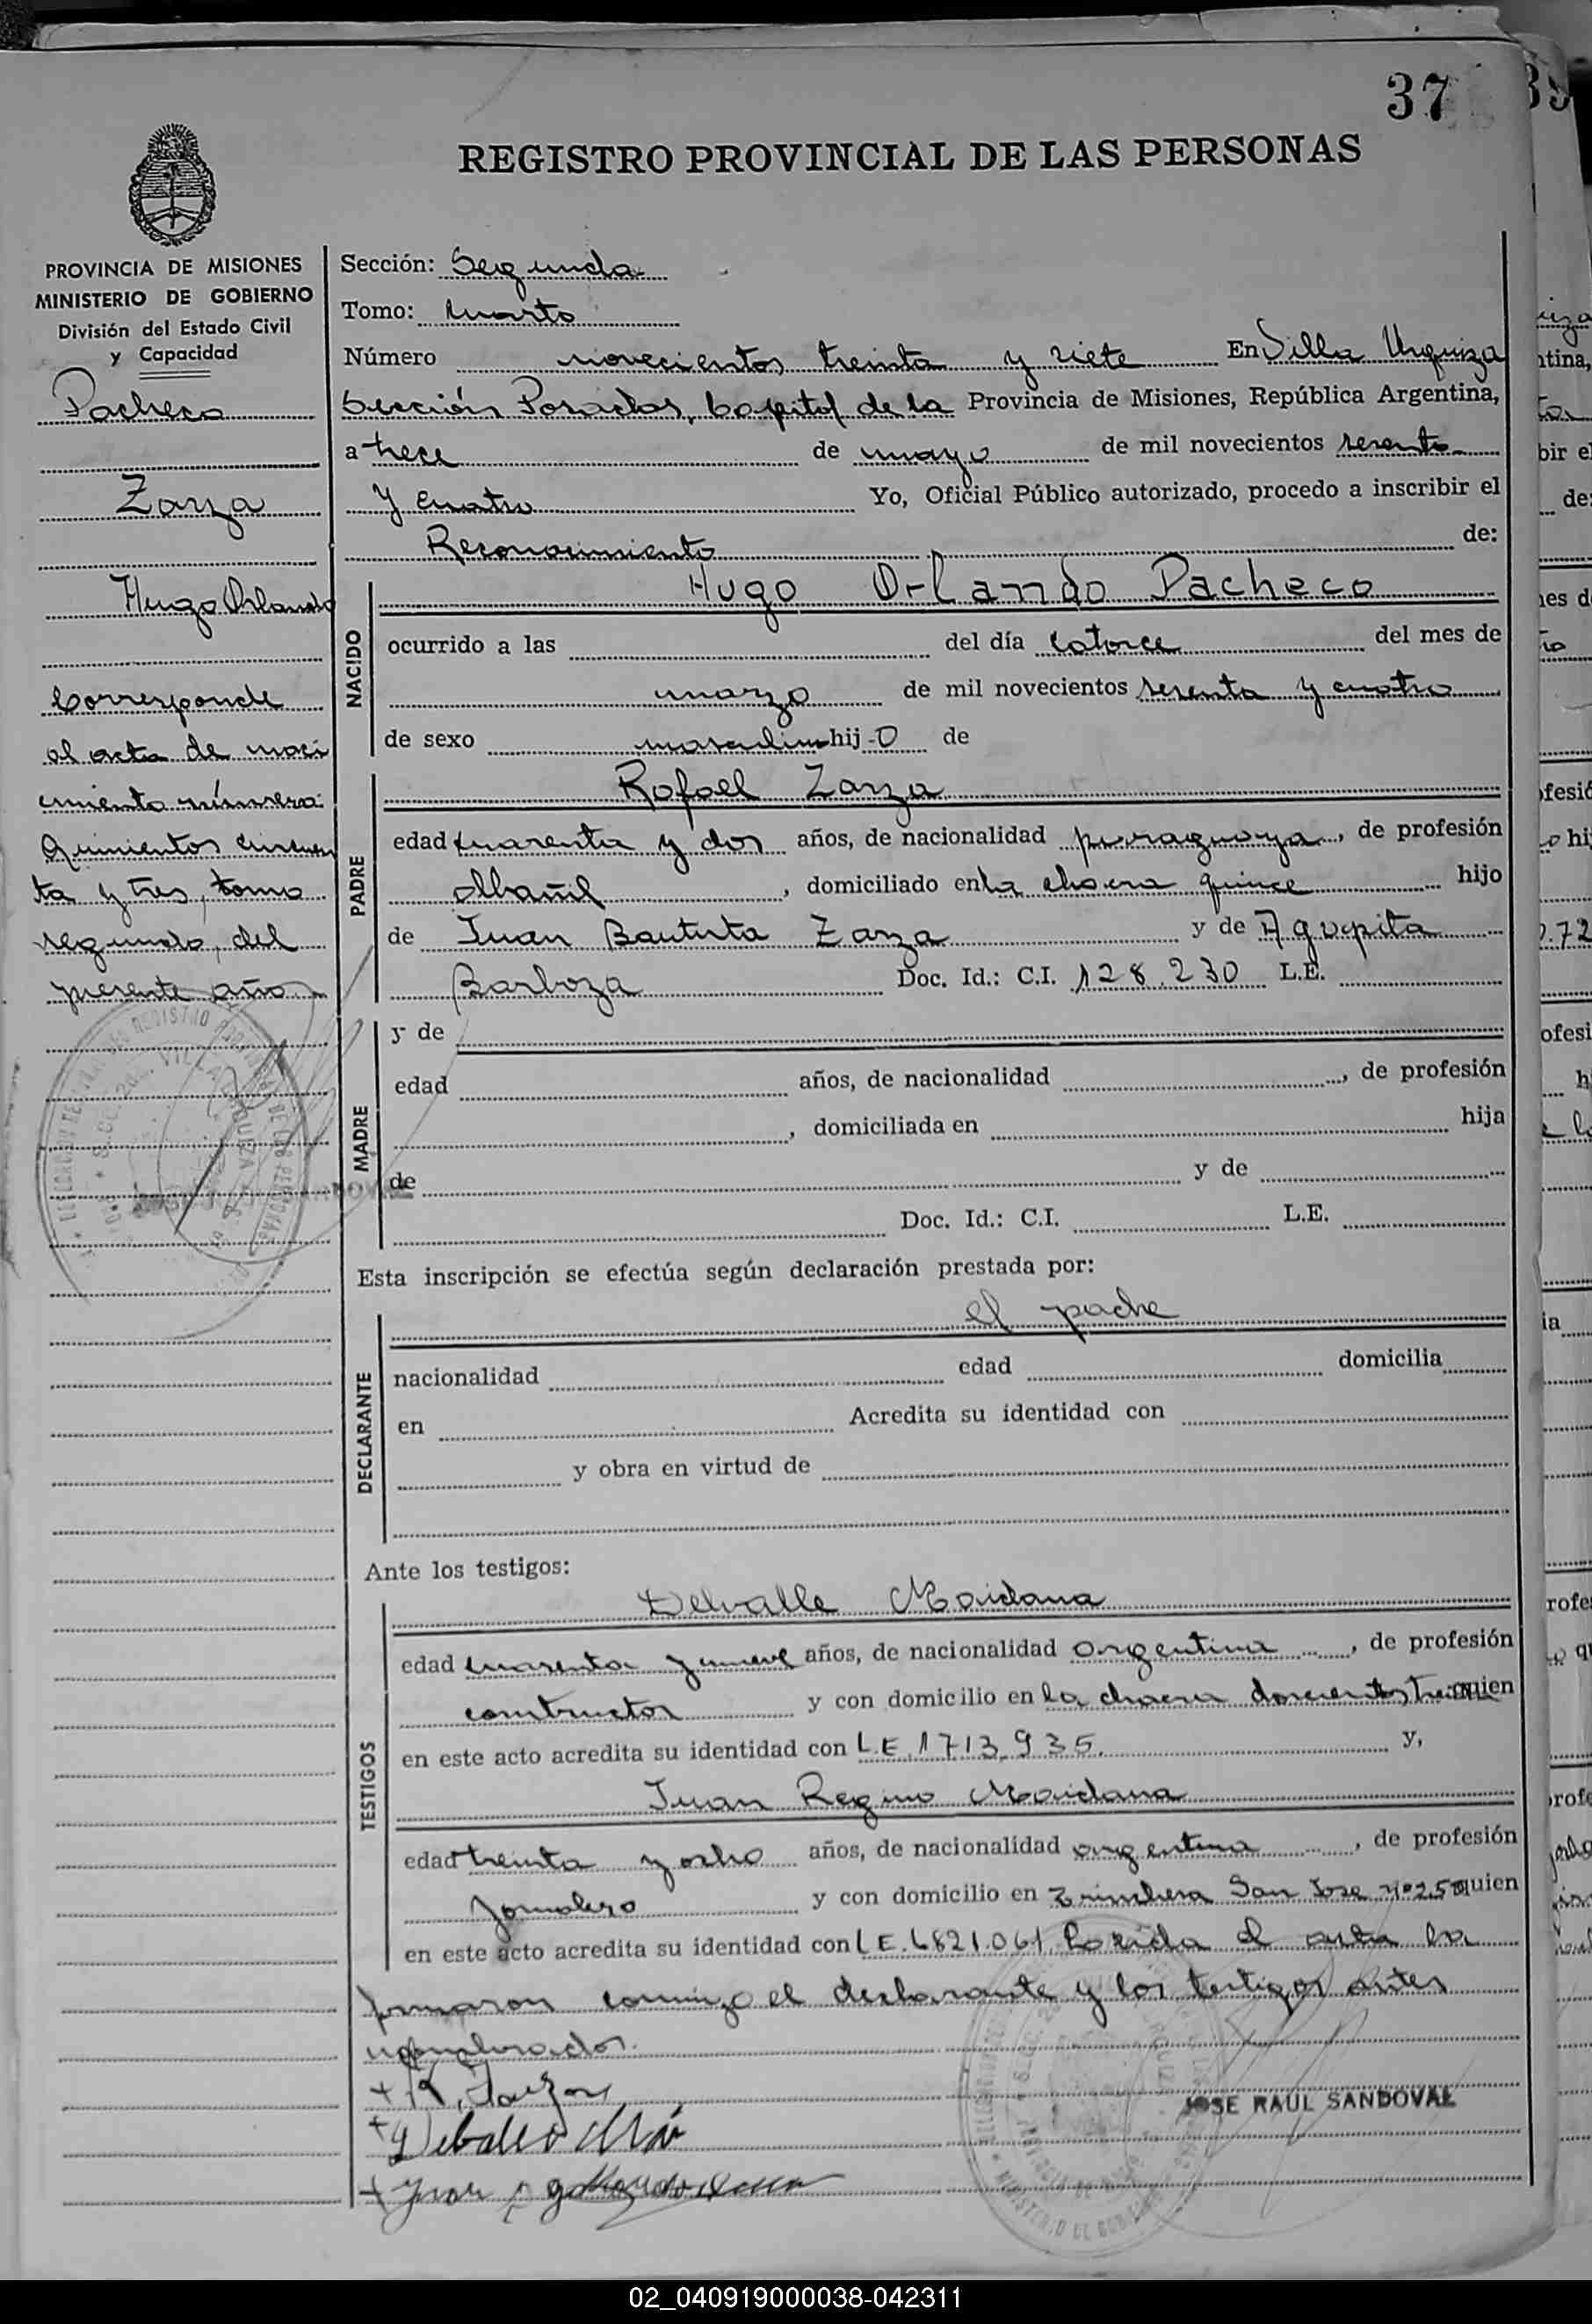 37
REGISTRO PROVINCIAL DE LAS PERSONAS
PROVINCIA DE MISIONES
MINISTERIO DE GOBIERNO
División del Estado Civil
y Capacidad
Pacheco
Zarza
Hugo Orlando
Corresponde
al acta de naci
miento número
Quinientos cincuen
ta y tres, tomo
segundo, del
presente año.
Sección: Segunda
Tomo: Cuarto
Número novecientos treinta y siete En Villa Urquiza
Sección Posadas, Capital de la Provincia de Misiones, República Argentina,
a trece de mayo de mil novecientos sesenta
y cuatro Yo, Oficial Público autorizado, procedo a inscribir el
Reconocimiento de:
NACIDO
Hugo Orlando Pacheco
ocurrido a las del día catorce del mes de
marzo de mil novecientos sesenta y cuatro
de sexo masculino hij o de
PADRE
Rafael Zarza
edad cuarenta y dos años, de nacionalidad paraguaya, de profesión
albañil, domiciliado en la chacra quince hijo
de Juan Bautista Zarza y de Agupita
Barboza Doc. Id.: C.I. 128.230 L.E.
MADRE
y de
edad años, de nacionalidad , de profesión
, domiciliada en hija
de y de
Doc. Id.: C.I. L.E.
Esta inscripción se efectúa según declaración prestada por:
DECLARANTE
el padre
nacionalidad edad domicilia
en Acredita su identidad con
y obra en virtud de
Ante los testigos:
TESTIGOS
Delvalle Maidana
edad cuarenta y nueve años, de nacionalidad argentina, de profesión
constructor y con domicilio en la chacra doscientos quien
en este acto acredita su identidad con L.E. 1713.935. y,
Juan Regino Maidana
edad treinta y ocho años, de nacionalidad argentina, de profesión
jornalero y con domicilio en Trinchera San Jose nº 25 quien
en este acto acredita su identidad con L E. 6821.061. Leída el acta la
firmaron conmigo el declarante y los testigos antes
nombrados.
JOSE RAUL SANDOVAL
02_040919000038-042311